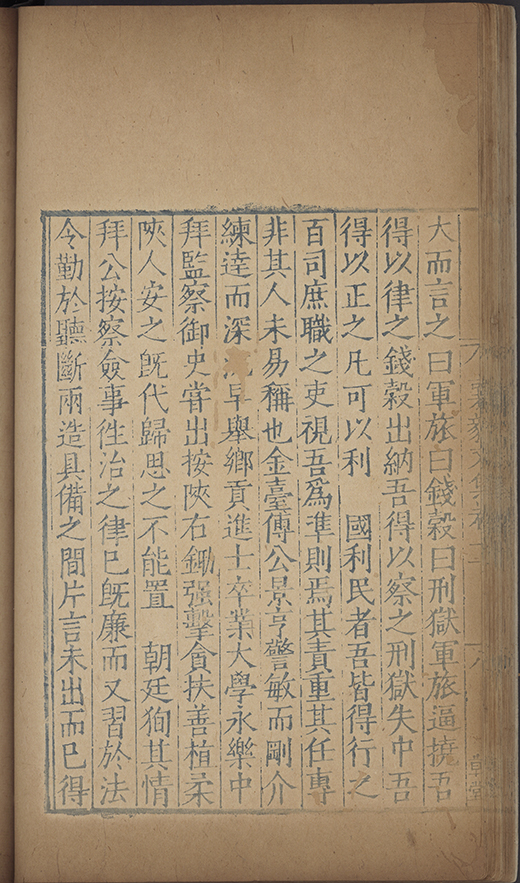 大而言之曰軍旅曰錢穀曰刑獄軍旅逗撓吾
得以律之錢穀出納吾得以察之刑獄失中吾
得以正之凡可以利　國利民者吾皆得行之
百司庶職之吏視吾爲準則焉其責重其任專
非其人未易稱也金臺傅公景亨警敏而剛介
練達而深早舉鄉貢進士卒業大學永樂中
拜監察御史甞出按陜右鋤强擊貪扶善植柔
陜人安之旣代歸思之不能置　朝廷狥其情
拜公按察僉事徃治之律已旣廉而又習於法
令勤於聽斷兩造具備之間片言未出而已得